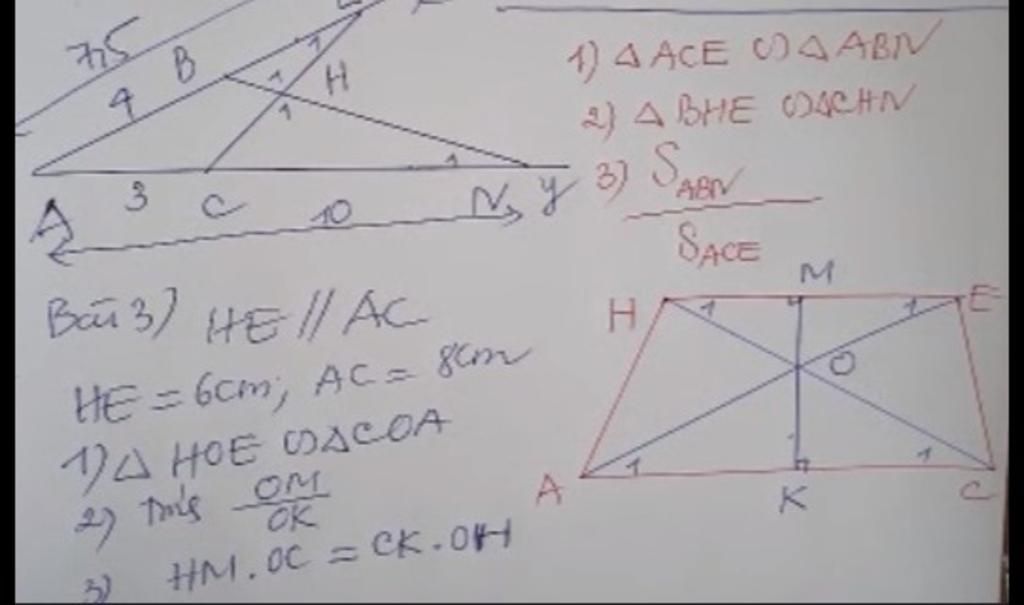 7,5
B
4
1
1
H
1
1
A
3
C
10
N
y
1) Δ ACE ∽ Δ ABN
2) Δ BHE ∽ Δ CHN
3) S_ABN
S_ACE
Bài 3) HE // AC
HE = 6cm; AC = 8cm
1) Δ HOE ∽ Δ COA
2) Tính OM/OK
3) HM.OC = CK.OH
H
1
M
1
E
O
A
1
K
1
C